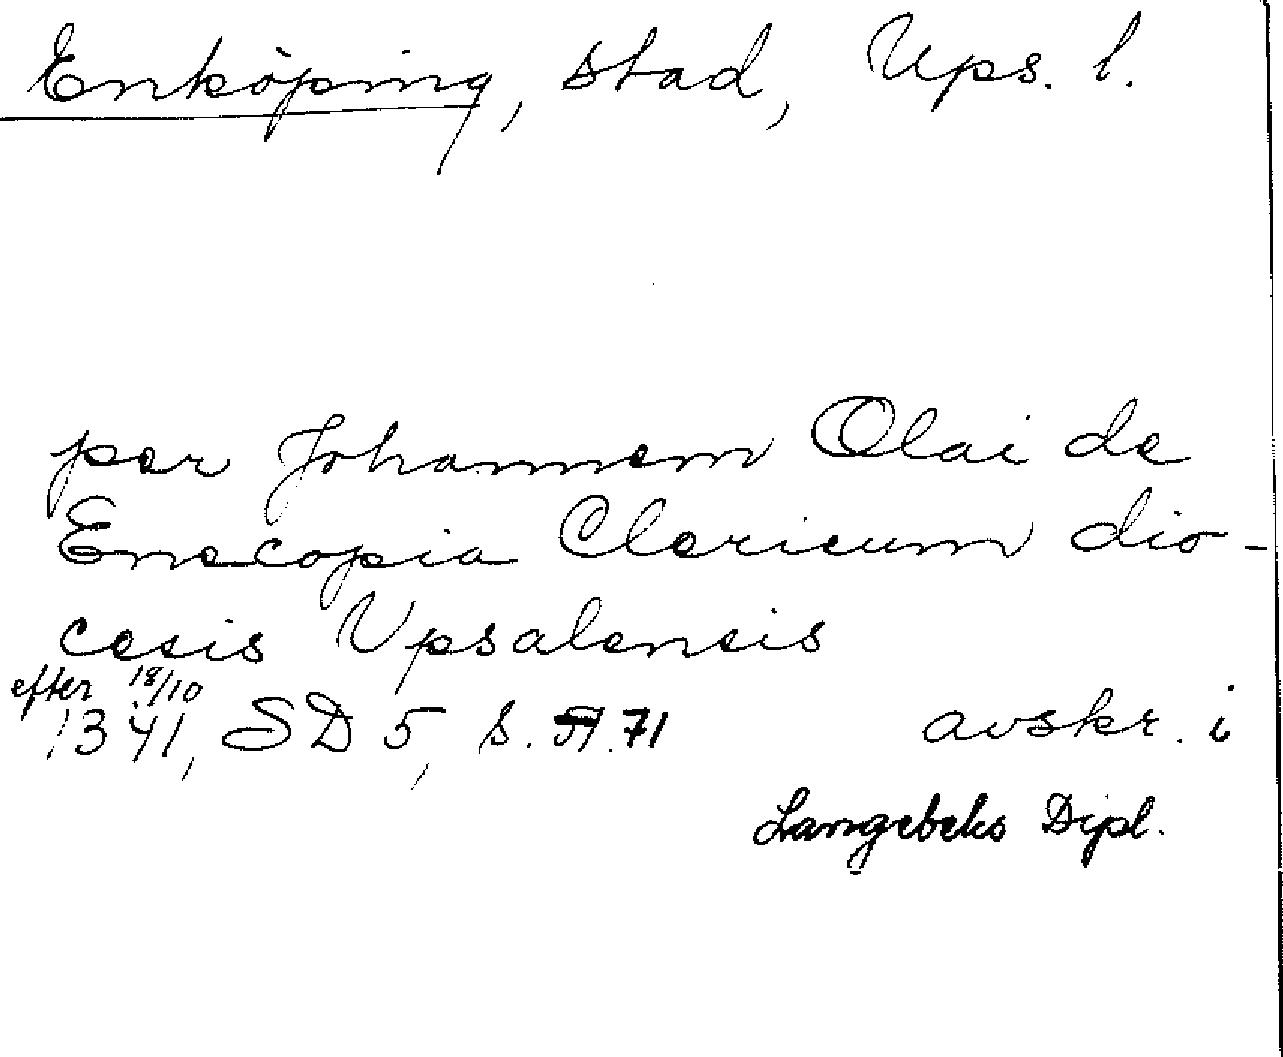 Enköping, stad, Ups. l.
per Johannem Olai de
Enecopia Clericum dio-
cesis Upsalensis
efter 18/10
1341, SD 5, s. 71 avskr. i
Langebeks Dipl.